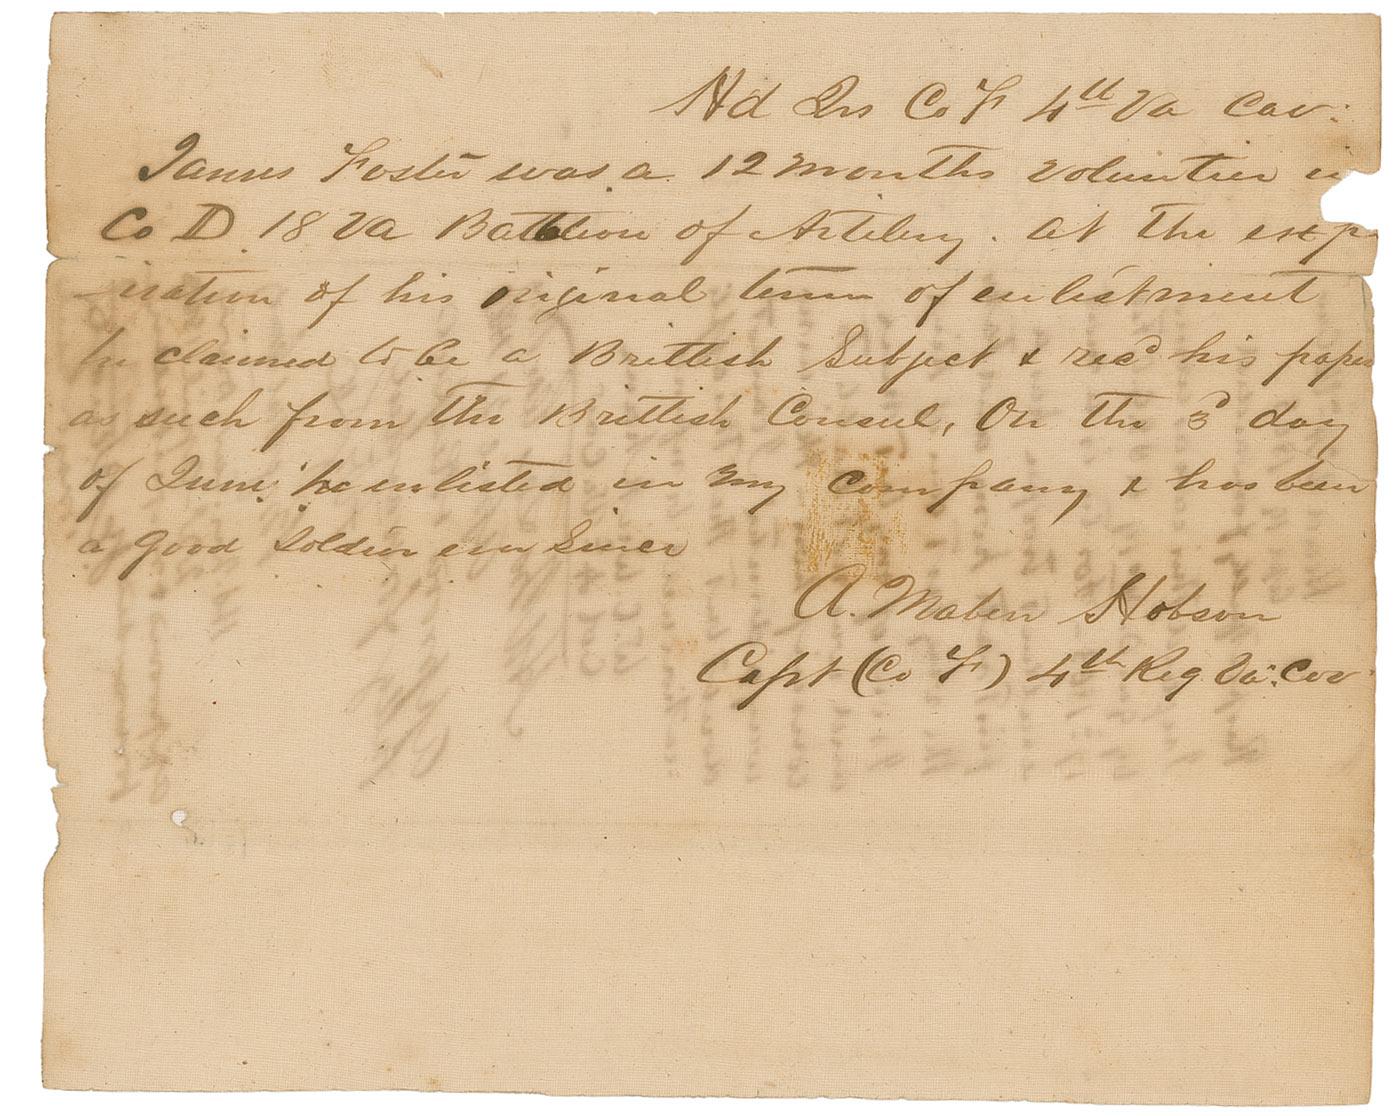 Hd Qrs Co F 4th Va Cav:
James Foster was a 12 months voluntier in
Co D 18 Va Battleion of Artilery. at the exp
-iration of his original term of enlistment
he claimed to be a Brittish Subject & recd his papers
as such from the Brittish Consul, On the 3d day
of June he enlisted in my company & has been
a good soldier ever since
A. Maben Hobson
Capt (Co F) 4th Reg Va: Cav